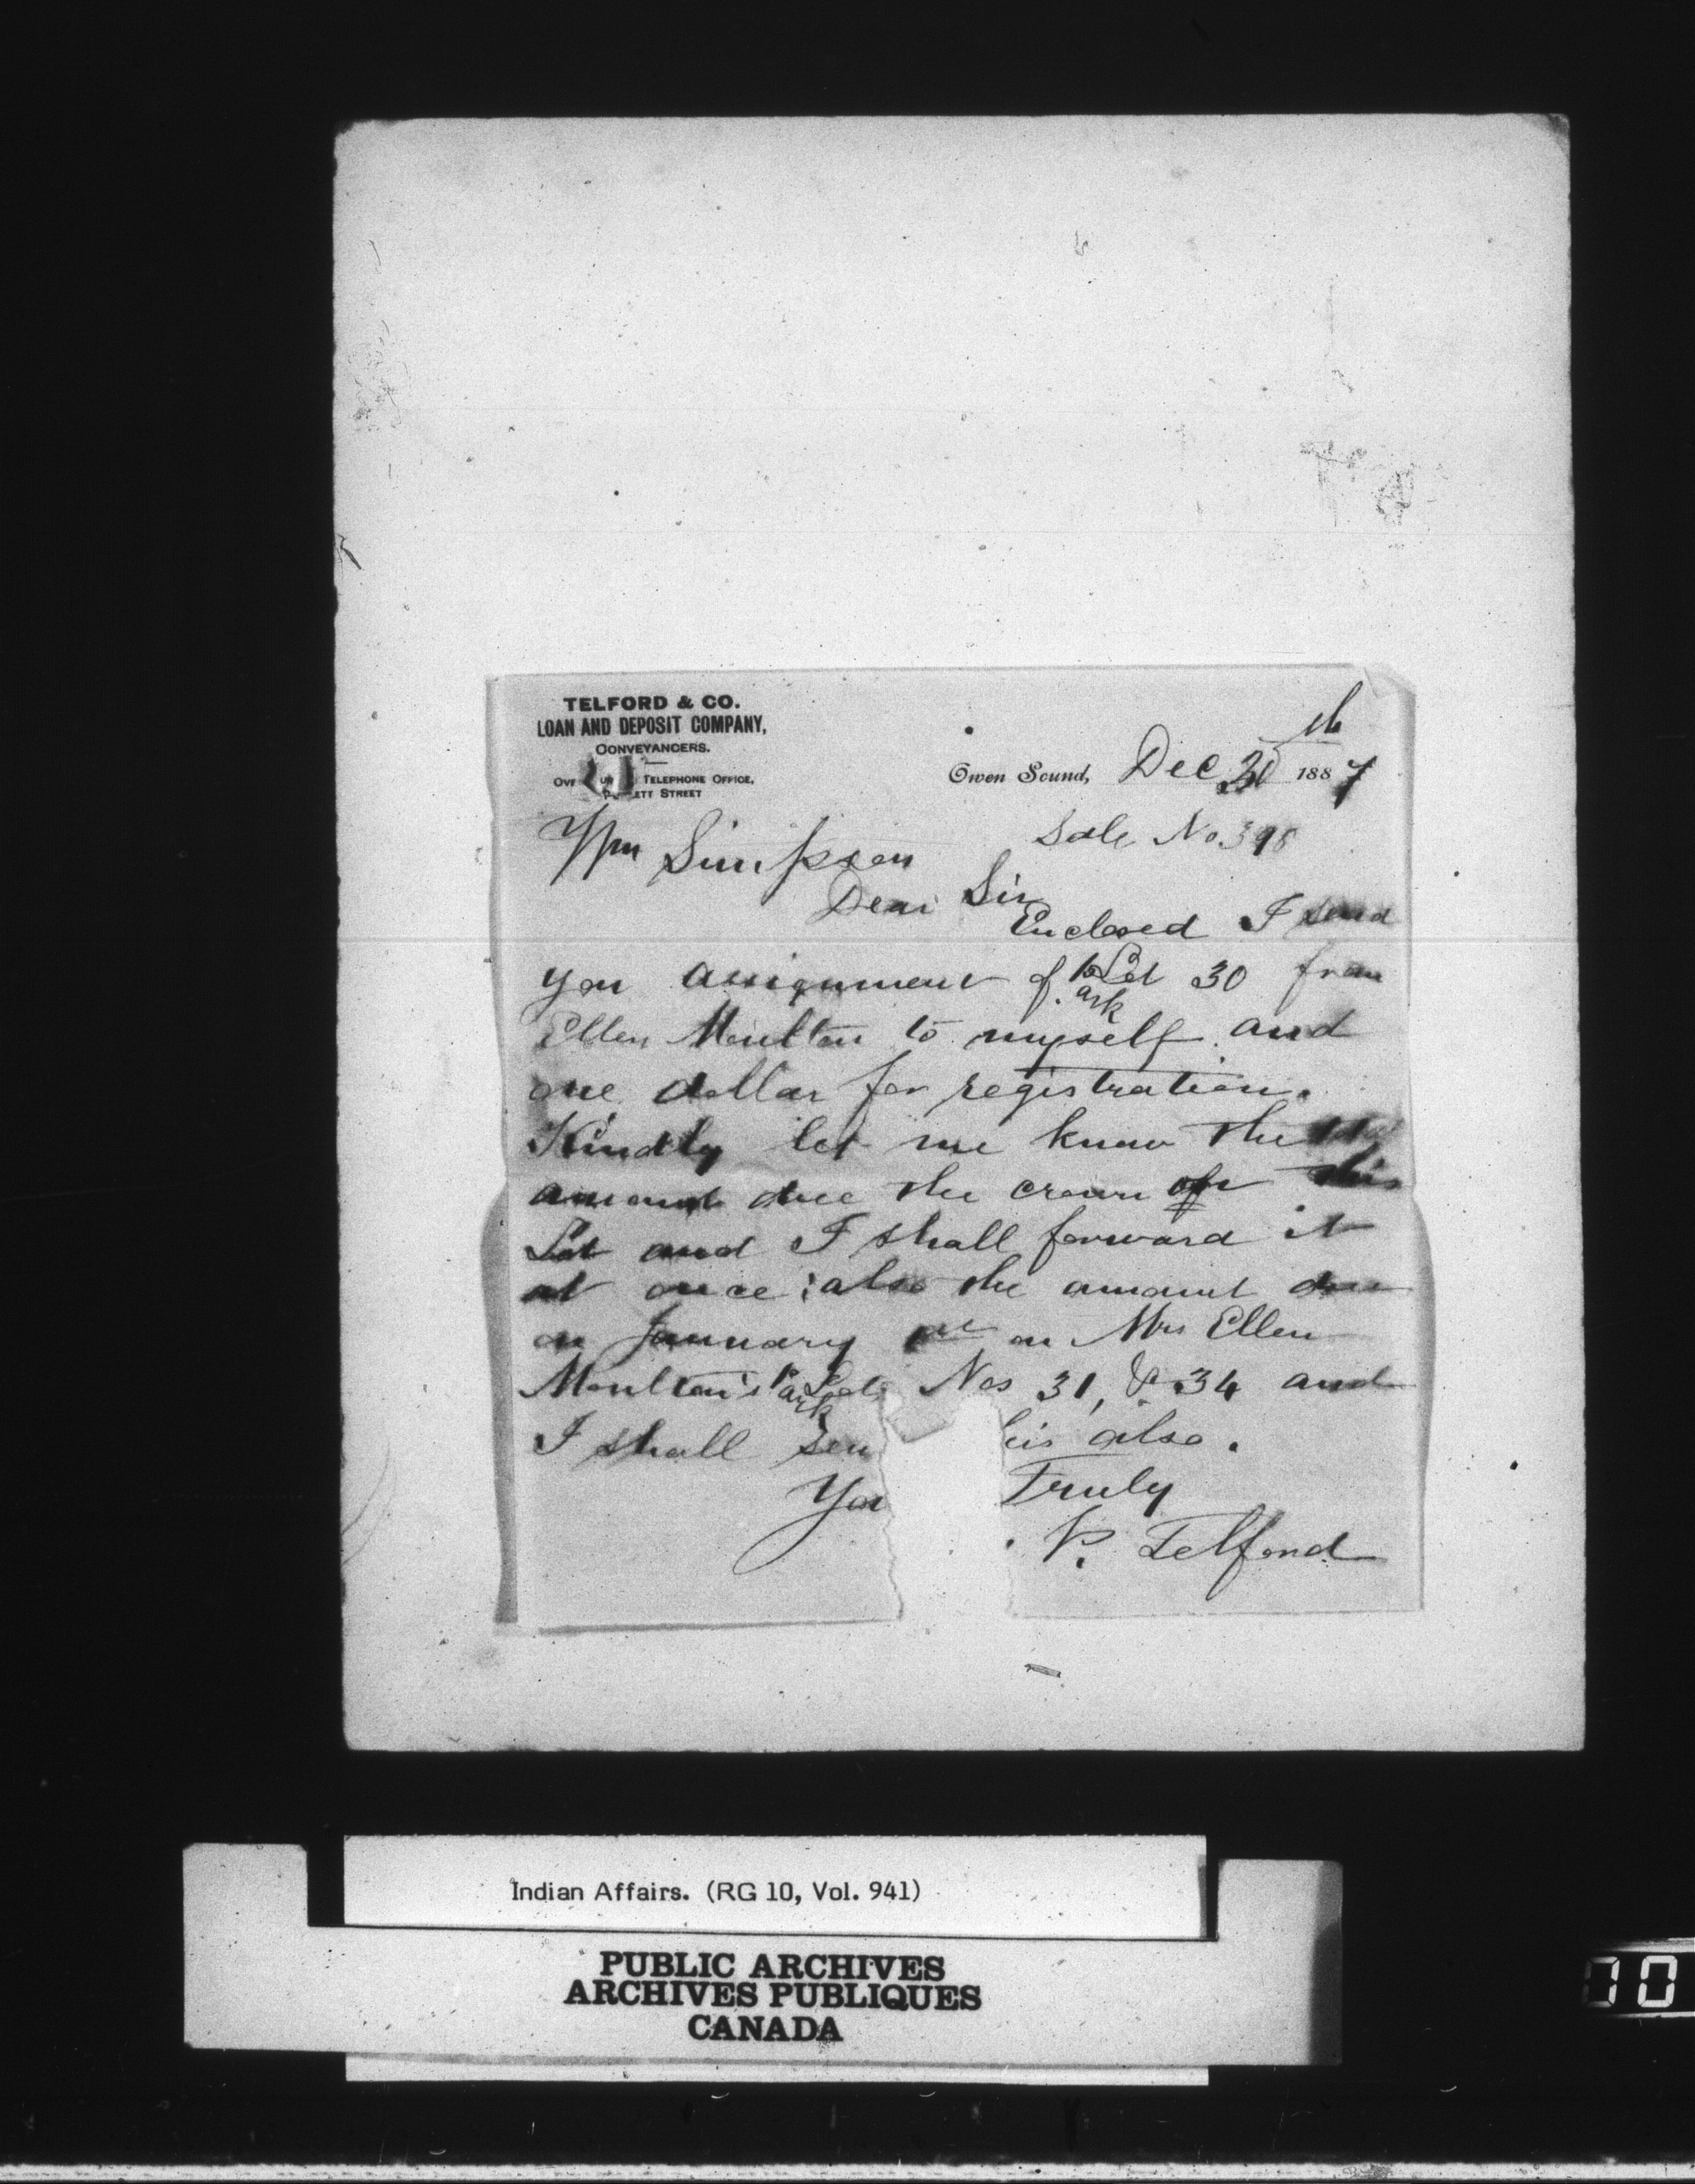 TELFORD & CO.
LOAN AND DEPOSIT COMPANY,
CONVEYANCERS.
TELEPHONE OFFICE,
ETT STREET
Owen Sound, Dec 30th 1887
Sale No. 398
Wm Simpson
Dear Sir
Enclosed I send
you assignment of Park Lot 30 from
Ellen Moulton to myself and
one dollar for registration.
Kindly let me know the
amount due the crown on this
Lot and I shall forward it
at once; also the amount due
on January 1st on Mrs Ellen
Moulton's Park Lots Nos 31, & 34 and
I shall sen his also.
You Truly
P. Telford
Indian Affairs. (RG 10, Vol. 941)
PUBLIC ARCHIVES
ARCHIVES PUBLIQUES
CANADA